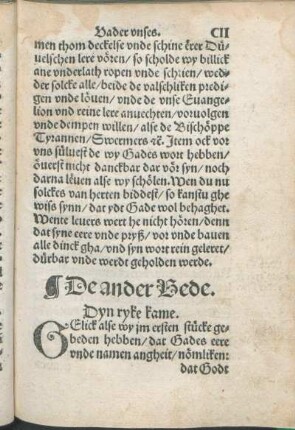 Vader vnses. CII
men thom deckelse vnde schine erer Dü-
uelschen lere vören/ so scholde wy billick
ane vnderlath ropen vnde schrien/ wed-
der solcke alle/ beide de valschliken predi-
gen vnde löuen/ vnde de vnse Euange-
lion vnd reine lere anvechten/ voruolgen
vnde dempen willen/ alse de Bischöppe
Tyrannen/ Swermers ꝛc. Jtem ock vor
vns süluest de wy Gades wort hebben/
öuerst nicht danckbar dar vör syn/ noch
darna leuen alse wy schölen. Wen du nu
solckes van herten biddest/ so kanstu ghe
wiss synn/ dat ydt Gade wol behaghet.
Wente leuers wert he nicht hören/ denn
dat syne eere vnde pryß/ vor vnde bauen
alle dinck gha/ vnd syn wort rein geleret/
dürbar vnde werdt geholden werde.
¶ De ander Bede.
Dyn ryke kame.
GElick alse wy jm ersten stücke ge-
beden hebben/ dat Gades eere
vnde namen angheit/ nömliken:
dat Godt